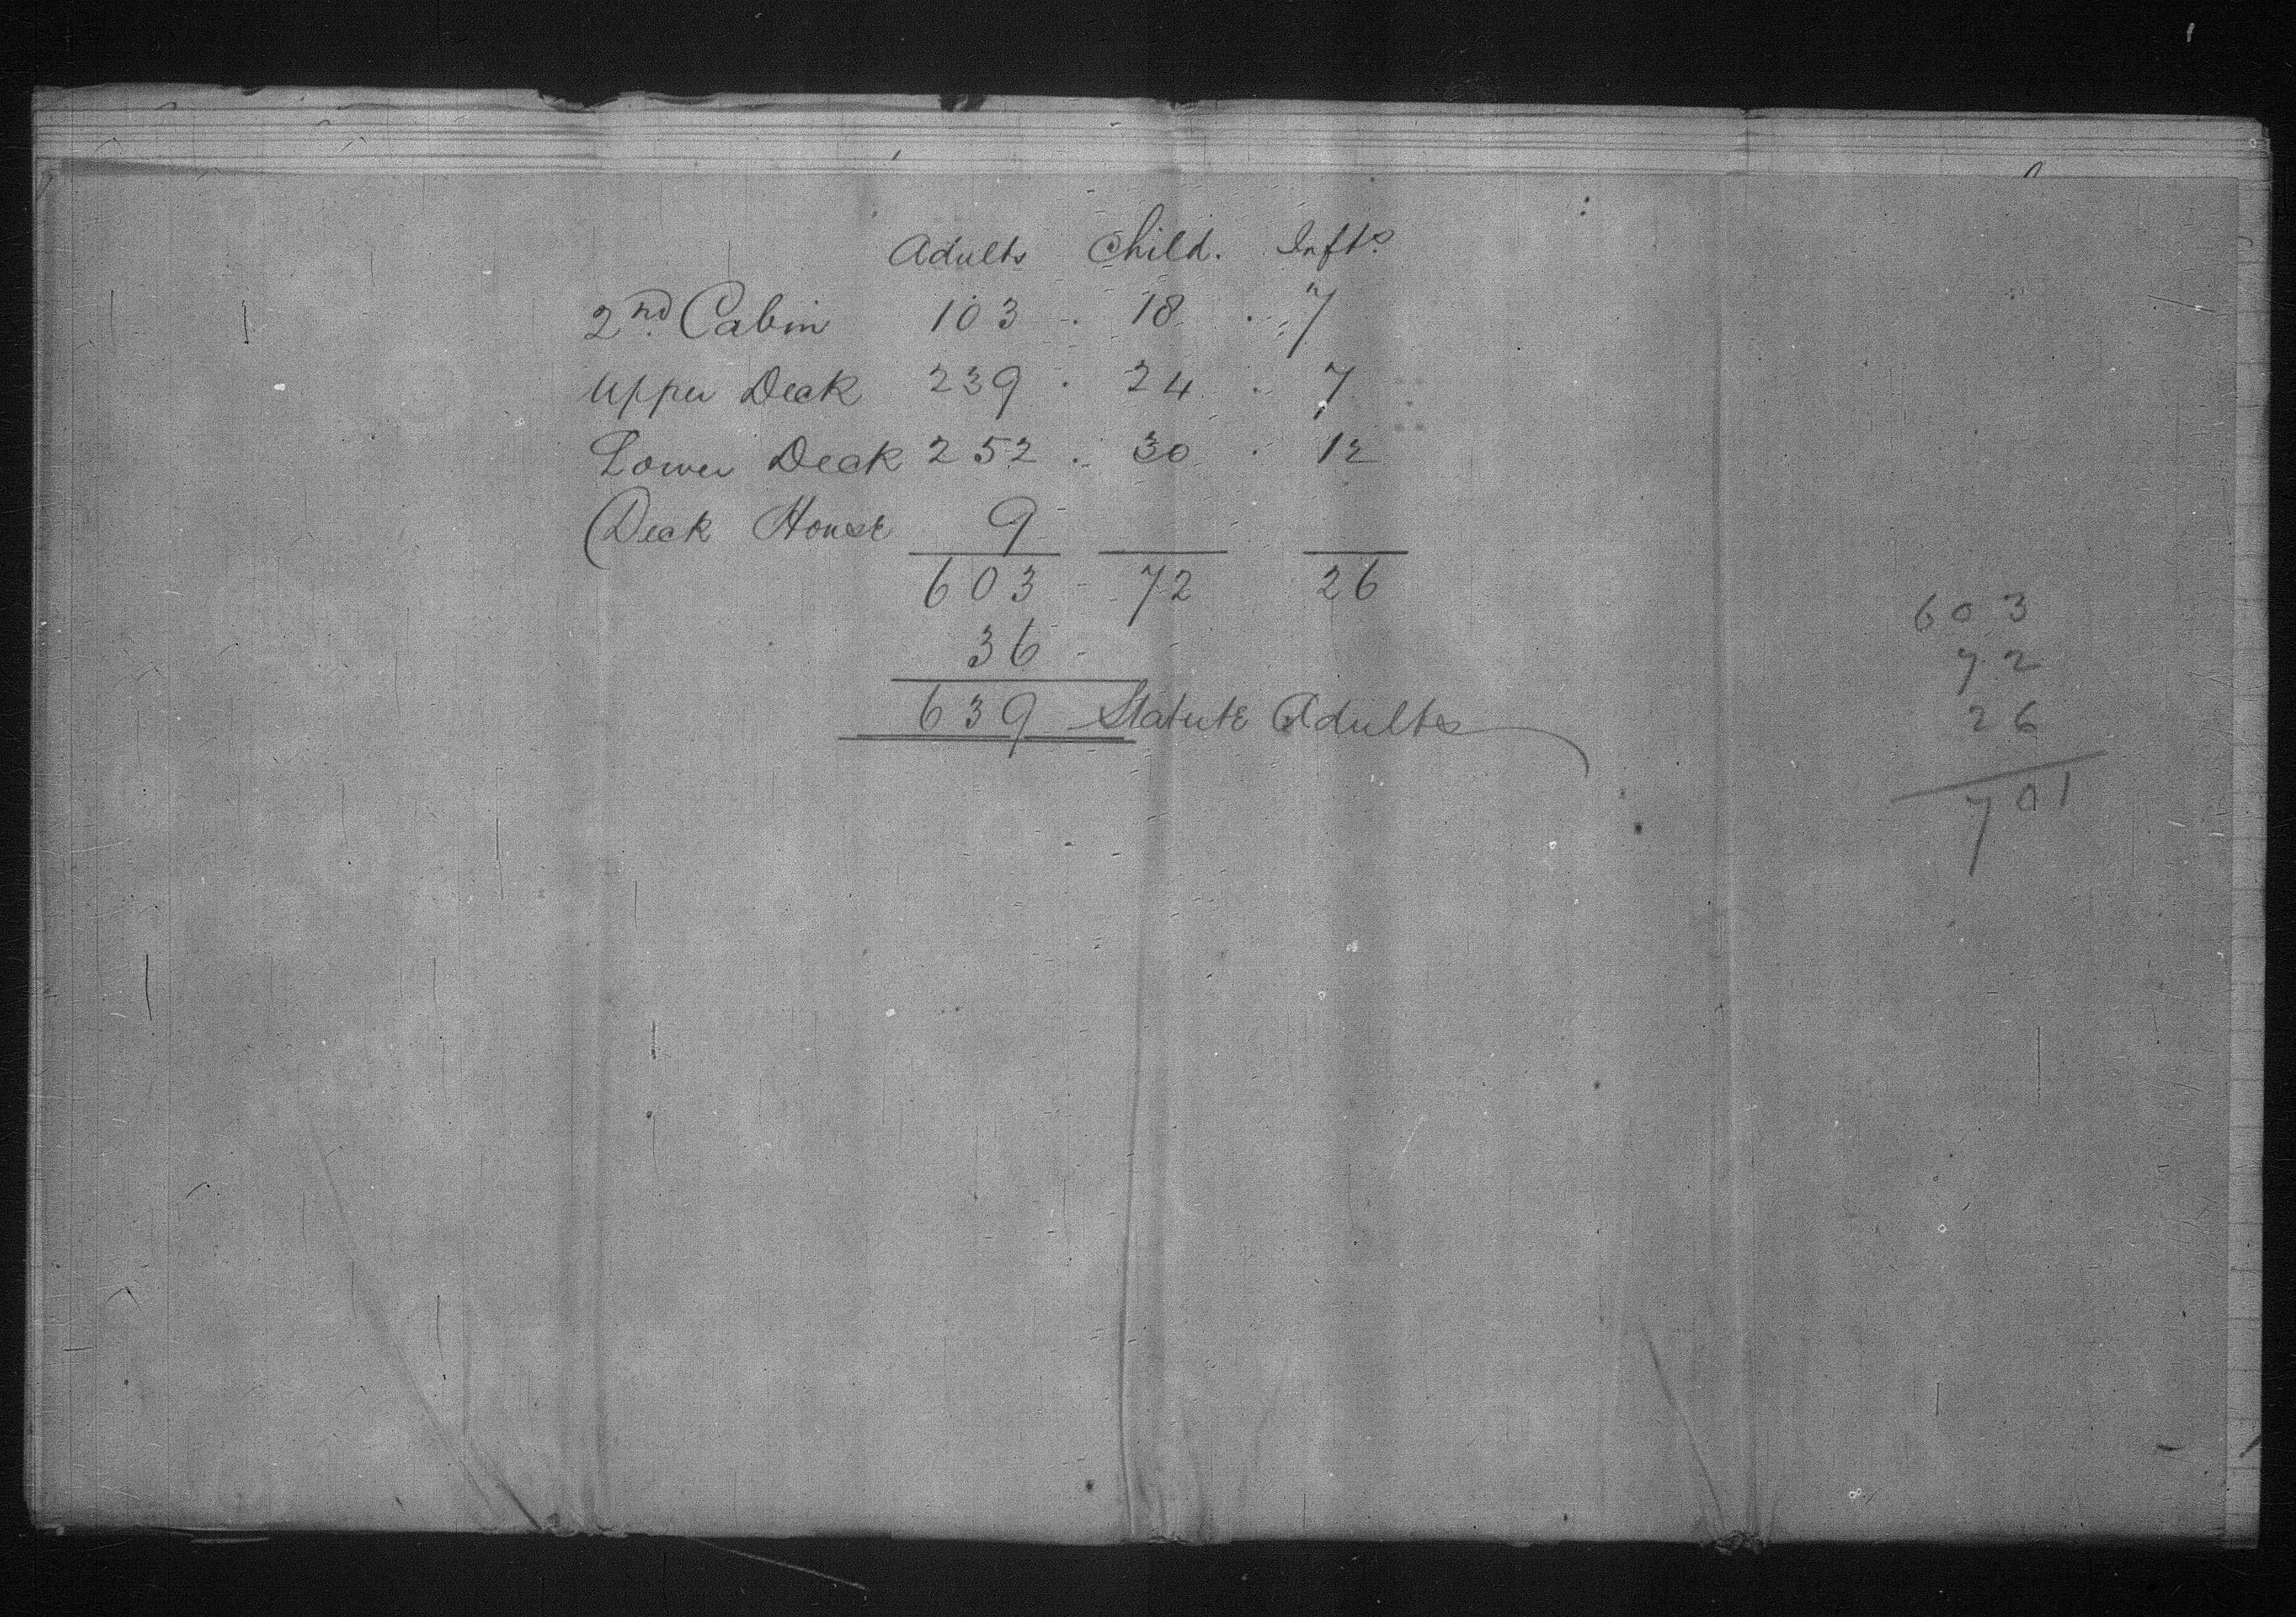 Adults Child. Infts.
2nd Cabin 103 . 18 . 7
Upper Deck 239 . 24 . 7
Lower Deck 252 . 30 . 12
Deck House 9
603 72 26
36
639 Statute Adults
603
72
26
701